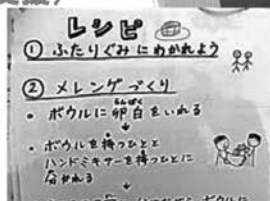 レシピ
① ふたりぐみにわかれよう
② メレンゲづくり
らんぱく
・ボウルに卵白をいれる
↓
・ボウルを持つひとと
ハンドミキサーを持つひとに
分かれる
↓